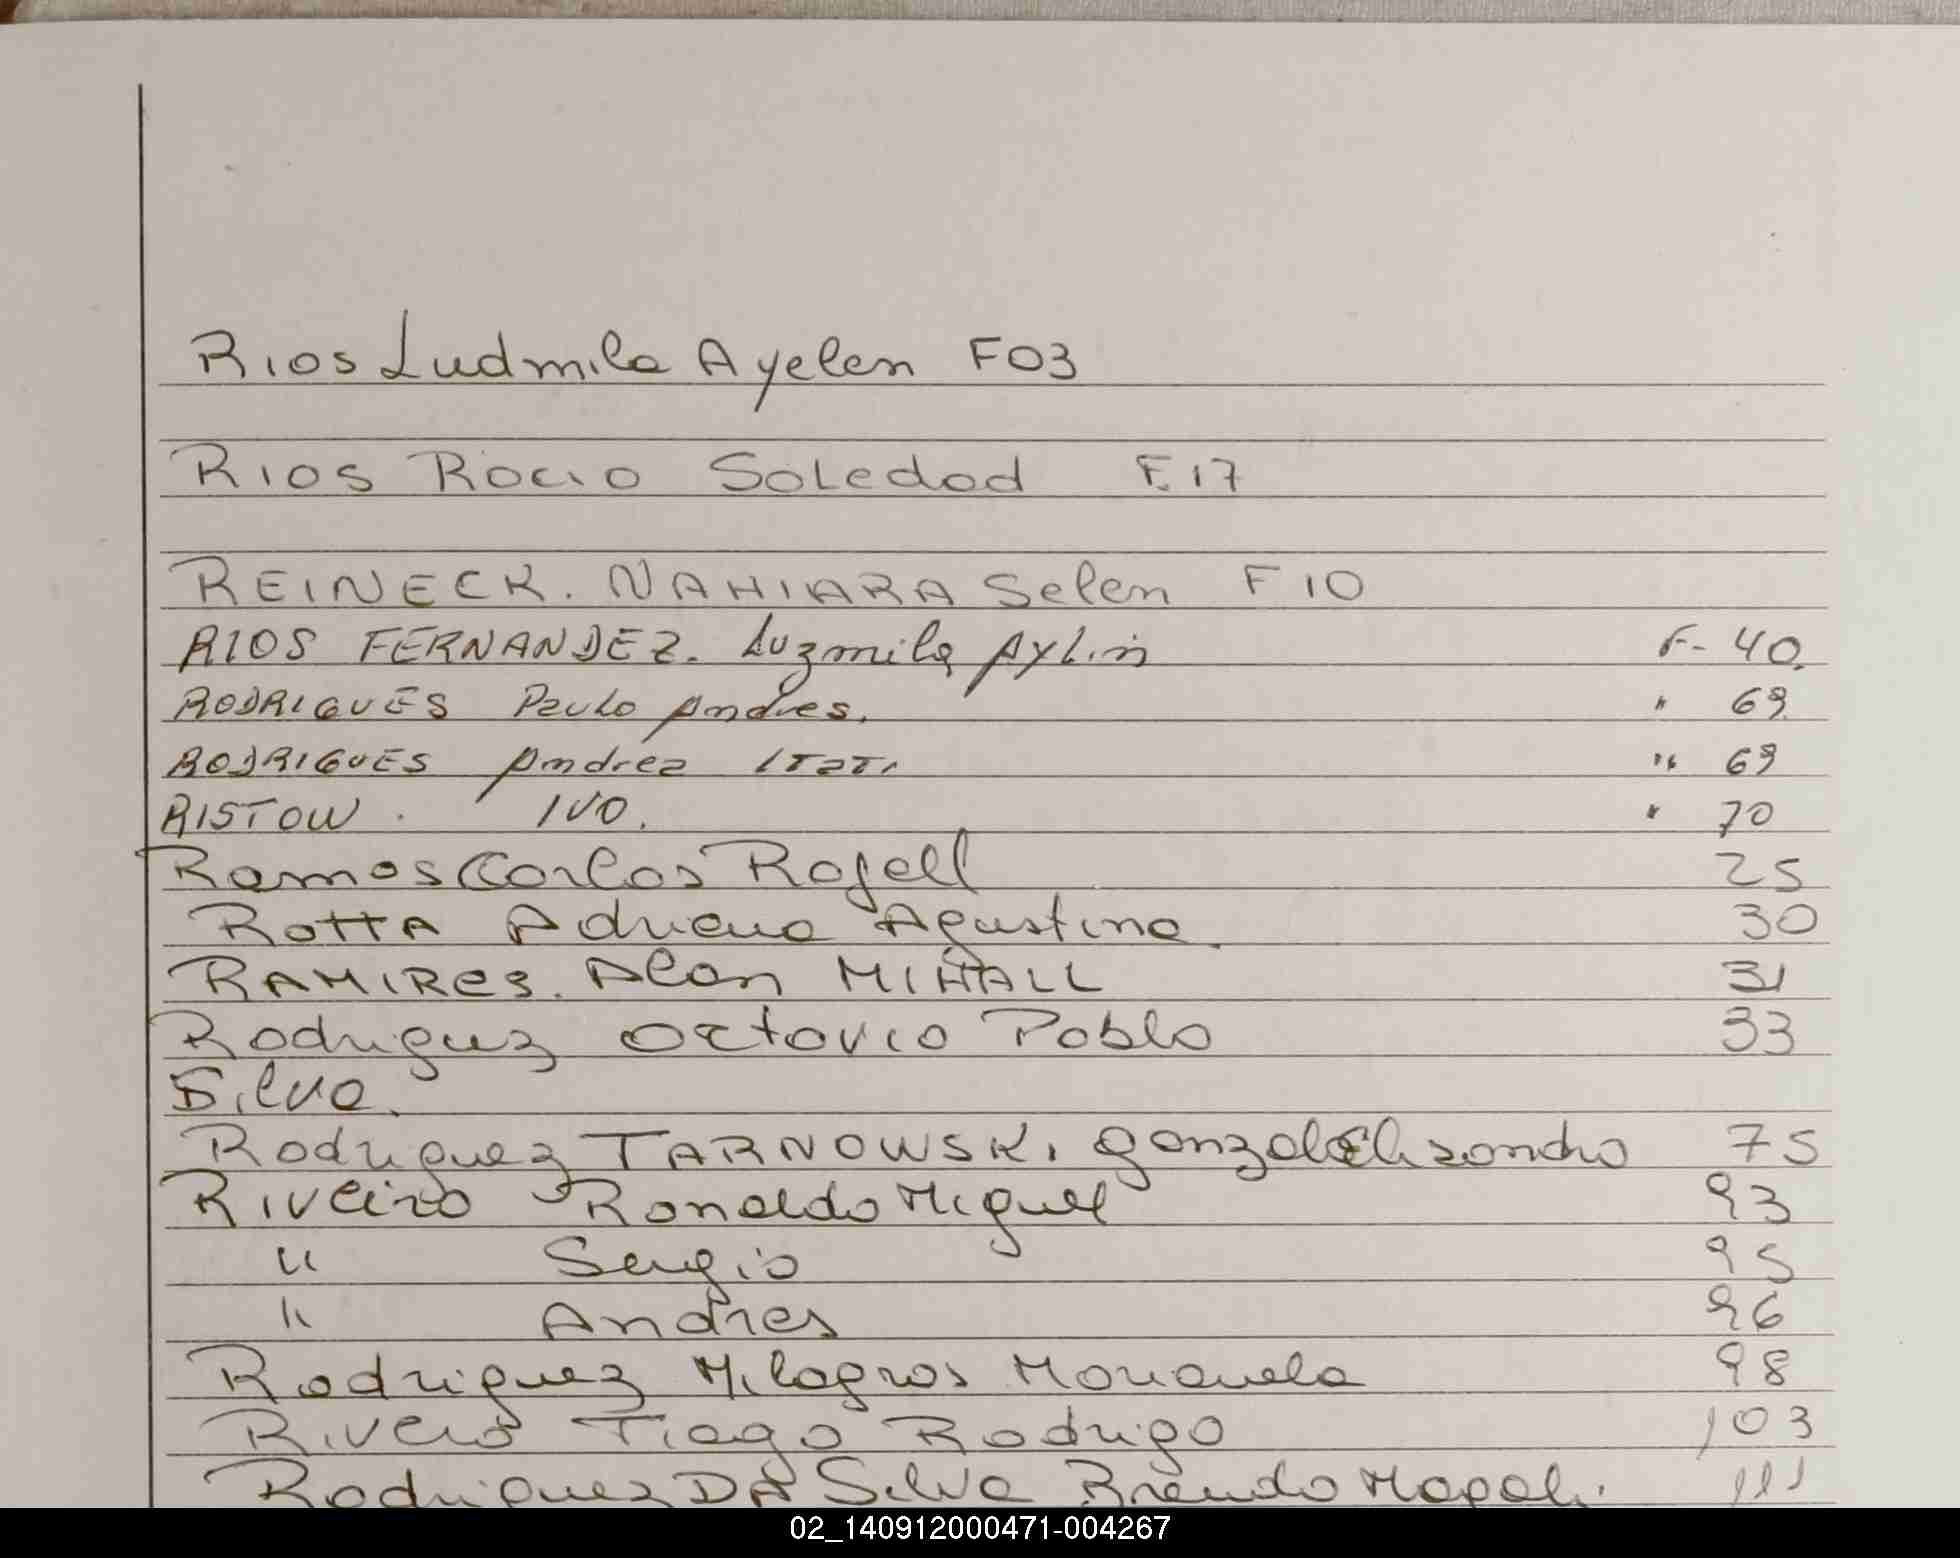 Rios Ludmila Ayelen F03
Rios Rocio Soledad F.17
REINECK. NAHIARA Selen F 10
RIOS FERNANDEZ. Luzmila Aylin F- 40.
RODRIGUES Paulo Andres. " 69
RODRIGUES Andrea ITATI " 69
RISTOW. IVO. " 70
Ramos Carlos Rafell 25
ROTTA Adriana Agustina. 30
RAMIRes. Alan MIHALL 31
Rodriguez Octavio Pablo 33
Silva.
Rodriguez TARNOWSKI 75
Riveiro Ronaldo Miguel 93
" Sergio 95
" Andres 96
Rodriguez Milagros Marianela 98
Rivero Tiago Rodrigo 103
Rodriguez DA Silva Brenda Magali. 111
02_140912000471-004267